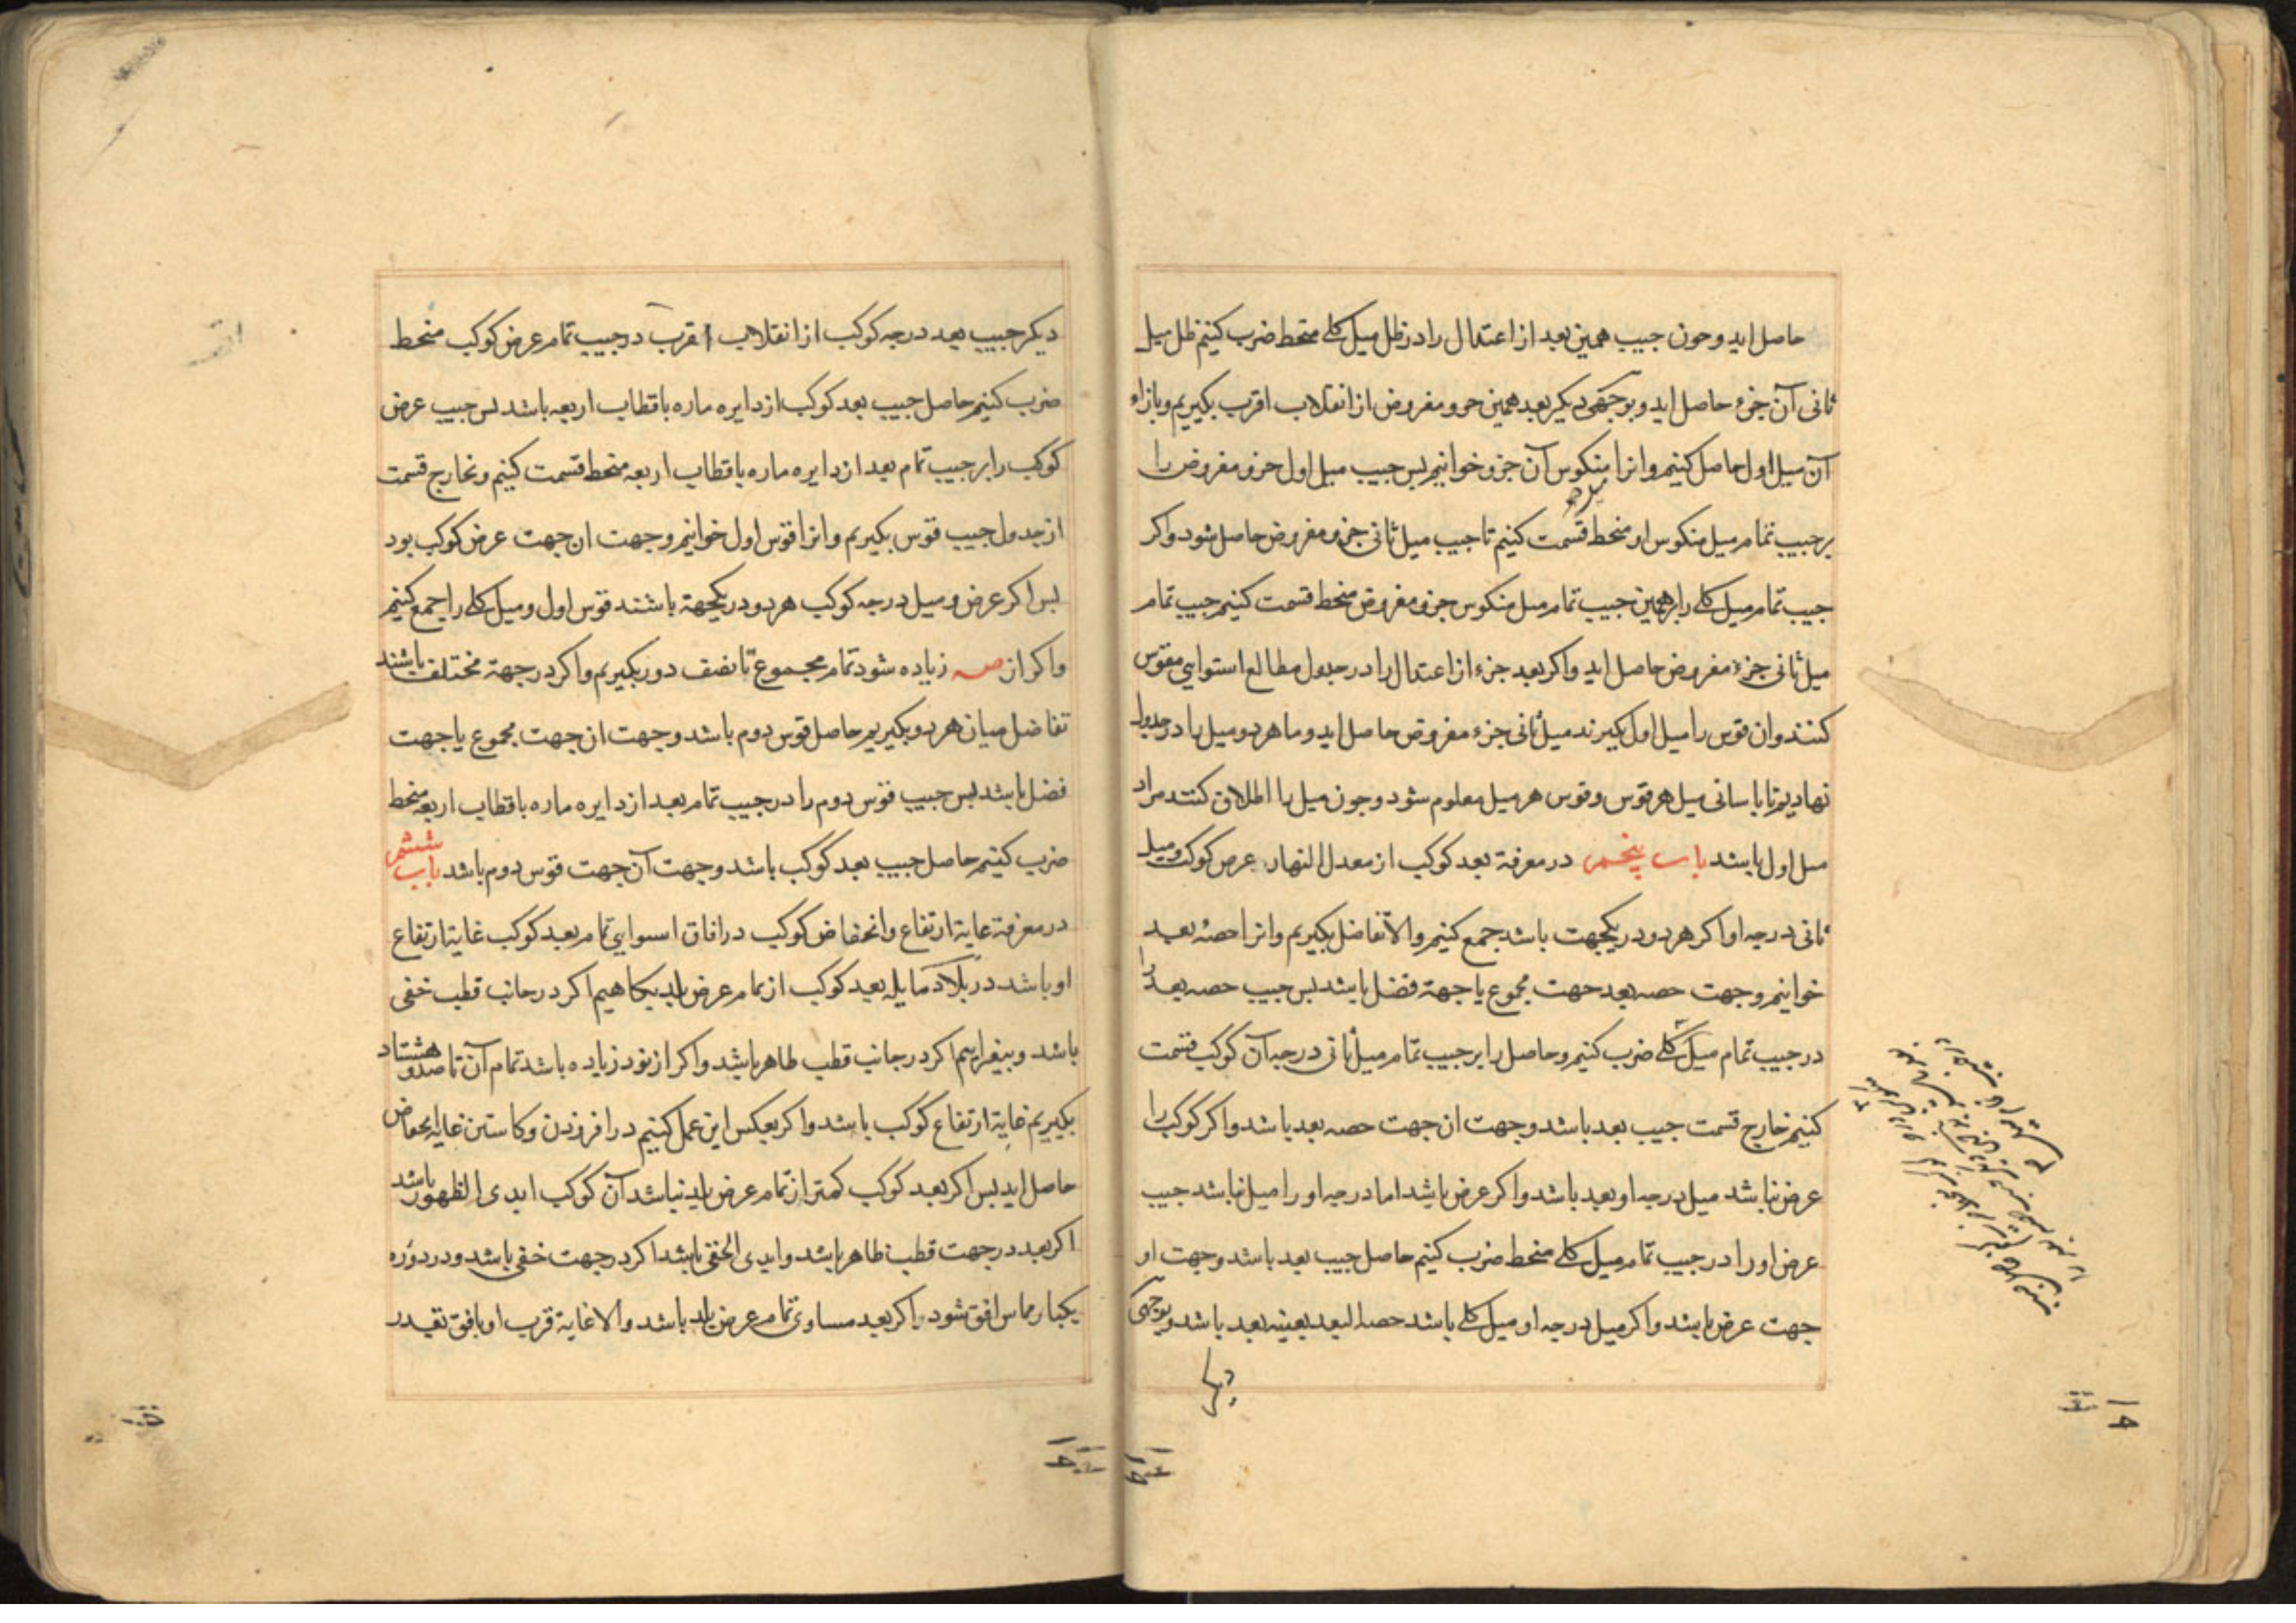 حاصل اید و حون جیب همین بعد از اعتدال را در ظل میل کلی منحط ضرب کنیم ظل میل
ثانی آن جزء حاصل اید و بوجهی دیکر بعد همین جزو مفروض از انقلاب اقرب بکیریم و بازاء
آن میل اول حاصل کنیم و انرا منکوس آن جزو خوانیم بس جیب میل اول جزو مفروض را
بر جیب تمام میل منکوس او منحط قسمت کنیم تا جیب میل ثانی جزو مفروض حاصل شود و اکر
جیب تمام میل کلی را بر همین جیب تمام میل منکوس جزو مفروض منحط قسمت کنیم جیب تمام
میل ثانی جزء مفروض حاصل اید و اکر بعد جزء از اعتدال را در جدول مطالع استوایی مقوس
کنند و ان قوس را میل اول کیرند میل ثانی جزء مفروض حاصل اید و ما هر دو میل را در جدول
نهادیم تا باسانی میل هر قوس و قوس هر میل معلوم شود و جون میل را اطلاق کنند مراد
میل اول باشد باب پنجم در معرفة بعد کوکب از معدل النهار عرض کوکب و میل
ثانی درجه او اکر هر دو در یکجهت باشد جمع کنیم و الا تفاضل بکیریم و انرا حصه بعد
خوانیم و جهت حصه بعد جهت مجموع یا جهة فضل باشد بس جیب حصه بعد را
در جیب تمام میل کلی ضرب کنیم و حاصل را بر جیب تمام میل ثانی درجه آن کوکب قسمت
کنیم خارج قسمت جیب بعد باشد و جهت ان جهت حصه بعد باشد و اکر کوکب را
عرض نباشد میل درجه او بعد باشد و اکر عرض باشد اما درجه او را میل نباشد جیب
عرض او را در جیب تمام میل کلی منحط ضرب کنیم حاصل جیب بعد باشد و جهت او
جهت عرض باشد و اکر میل درجه او میل کلی باشد حصه البعد بعینه بعد باشد و بوجهی
دیکر
دیکر جیب بعد درجه کوکب از انقلاب اقرب در جیب تمام عرض کوکب منحط
ضرب کنیم حاصل جیب بعد کوکب از دایره ماره باقطاب اربعه باشد بس جیب عرض
کوکب را بر جیب تمام بعد از دایره ماره باقطاب اربعه منحط قسمت کنیم و بخارج قسمت
از جدول جیب قوس بکیریم و انرا قوس اول خوانیم و جهت ان جهت عرض کوکب بود
بس اکر عرض و میل درجه کوکب هر دو در یکجهة باشند قوس اول و میل کلی را جمع کنیم
و اکر از صه زیاده شود تمام مجموع تا نصف دور بکیریم و اکر در جهة مختلف باشند
تفاضل میان هر دو بکیریم حاصل قوس دوم باشد و جهت ان جهت مجموع یا جهت
فضل باشد بس جیب قوس دوم را در جیب تمام بعد از دایره ماره باقطاب اربعه منحط
ضرب کنیم حاصل جیب بعد کوکب باشد و جهت آن جهت قوس دوم باشد باب ششم
در معرفة غایة ارتفاع و انخفاض کوکب در افاق استوایی تمام بعد کوکب غایة ارتفاع
او باشد در بلاد مایله بعد کوکب از تمام عرض بلد بکاهیم اکر در جانب قطب خفی
باشد و بیفزاییم اکر در جانب قطب ظاهر باشد و اکر از نود زیاده باشد تمام آن تا صد و هشتاد
بکیریم غایة ارتفاع کوکب باشد و اکر بعکس این عمل کنیم در افزودن و کاستن غایة انخفاض
حاصل اید بس اکر بعد کوکب کمتر از تمام عرض بلد نباشد آن کوکب ابدی الظهور باشد
اکر بعد در جهت قطب ظاهر باشد و ابدی الخفی باشد اکر در جهت خفی باشد و در دوره
یکبار مماس افق شود اکر بعد مساوی تمام عرض بلد باشد و الا غایة قرب او بافق بقدر